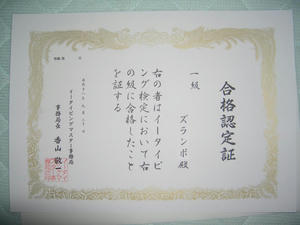 合格認定証
一級
ズランボ殿
右の者はイータイピ
ング検定において右
の級に合格したこと
を証する
イータイピングマスター事務局
事務局長 香山 敬一